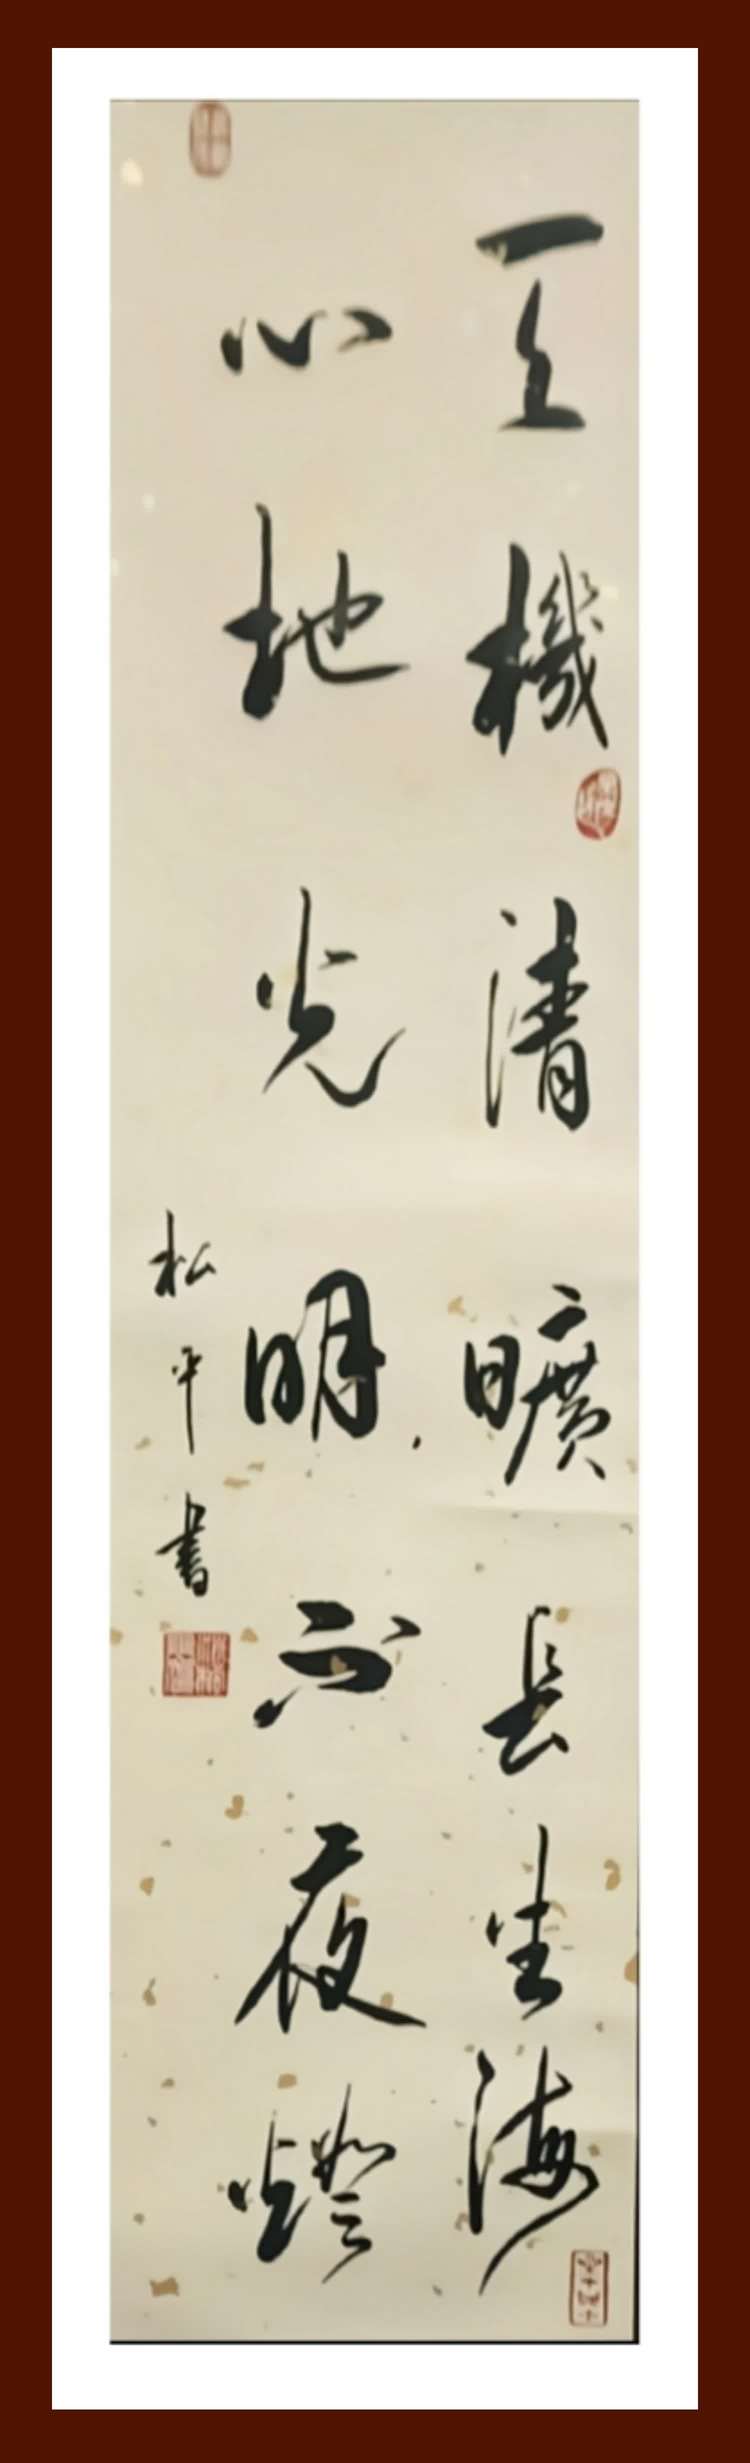 天機清曠長生海
心地光明不夜燈
松平書